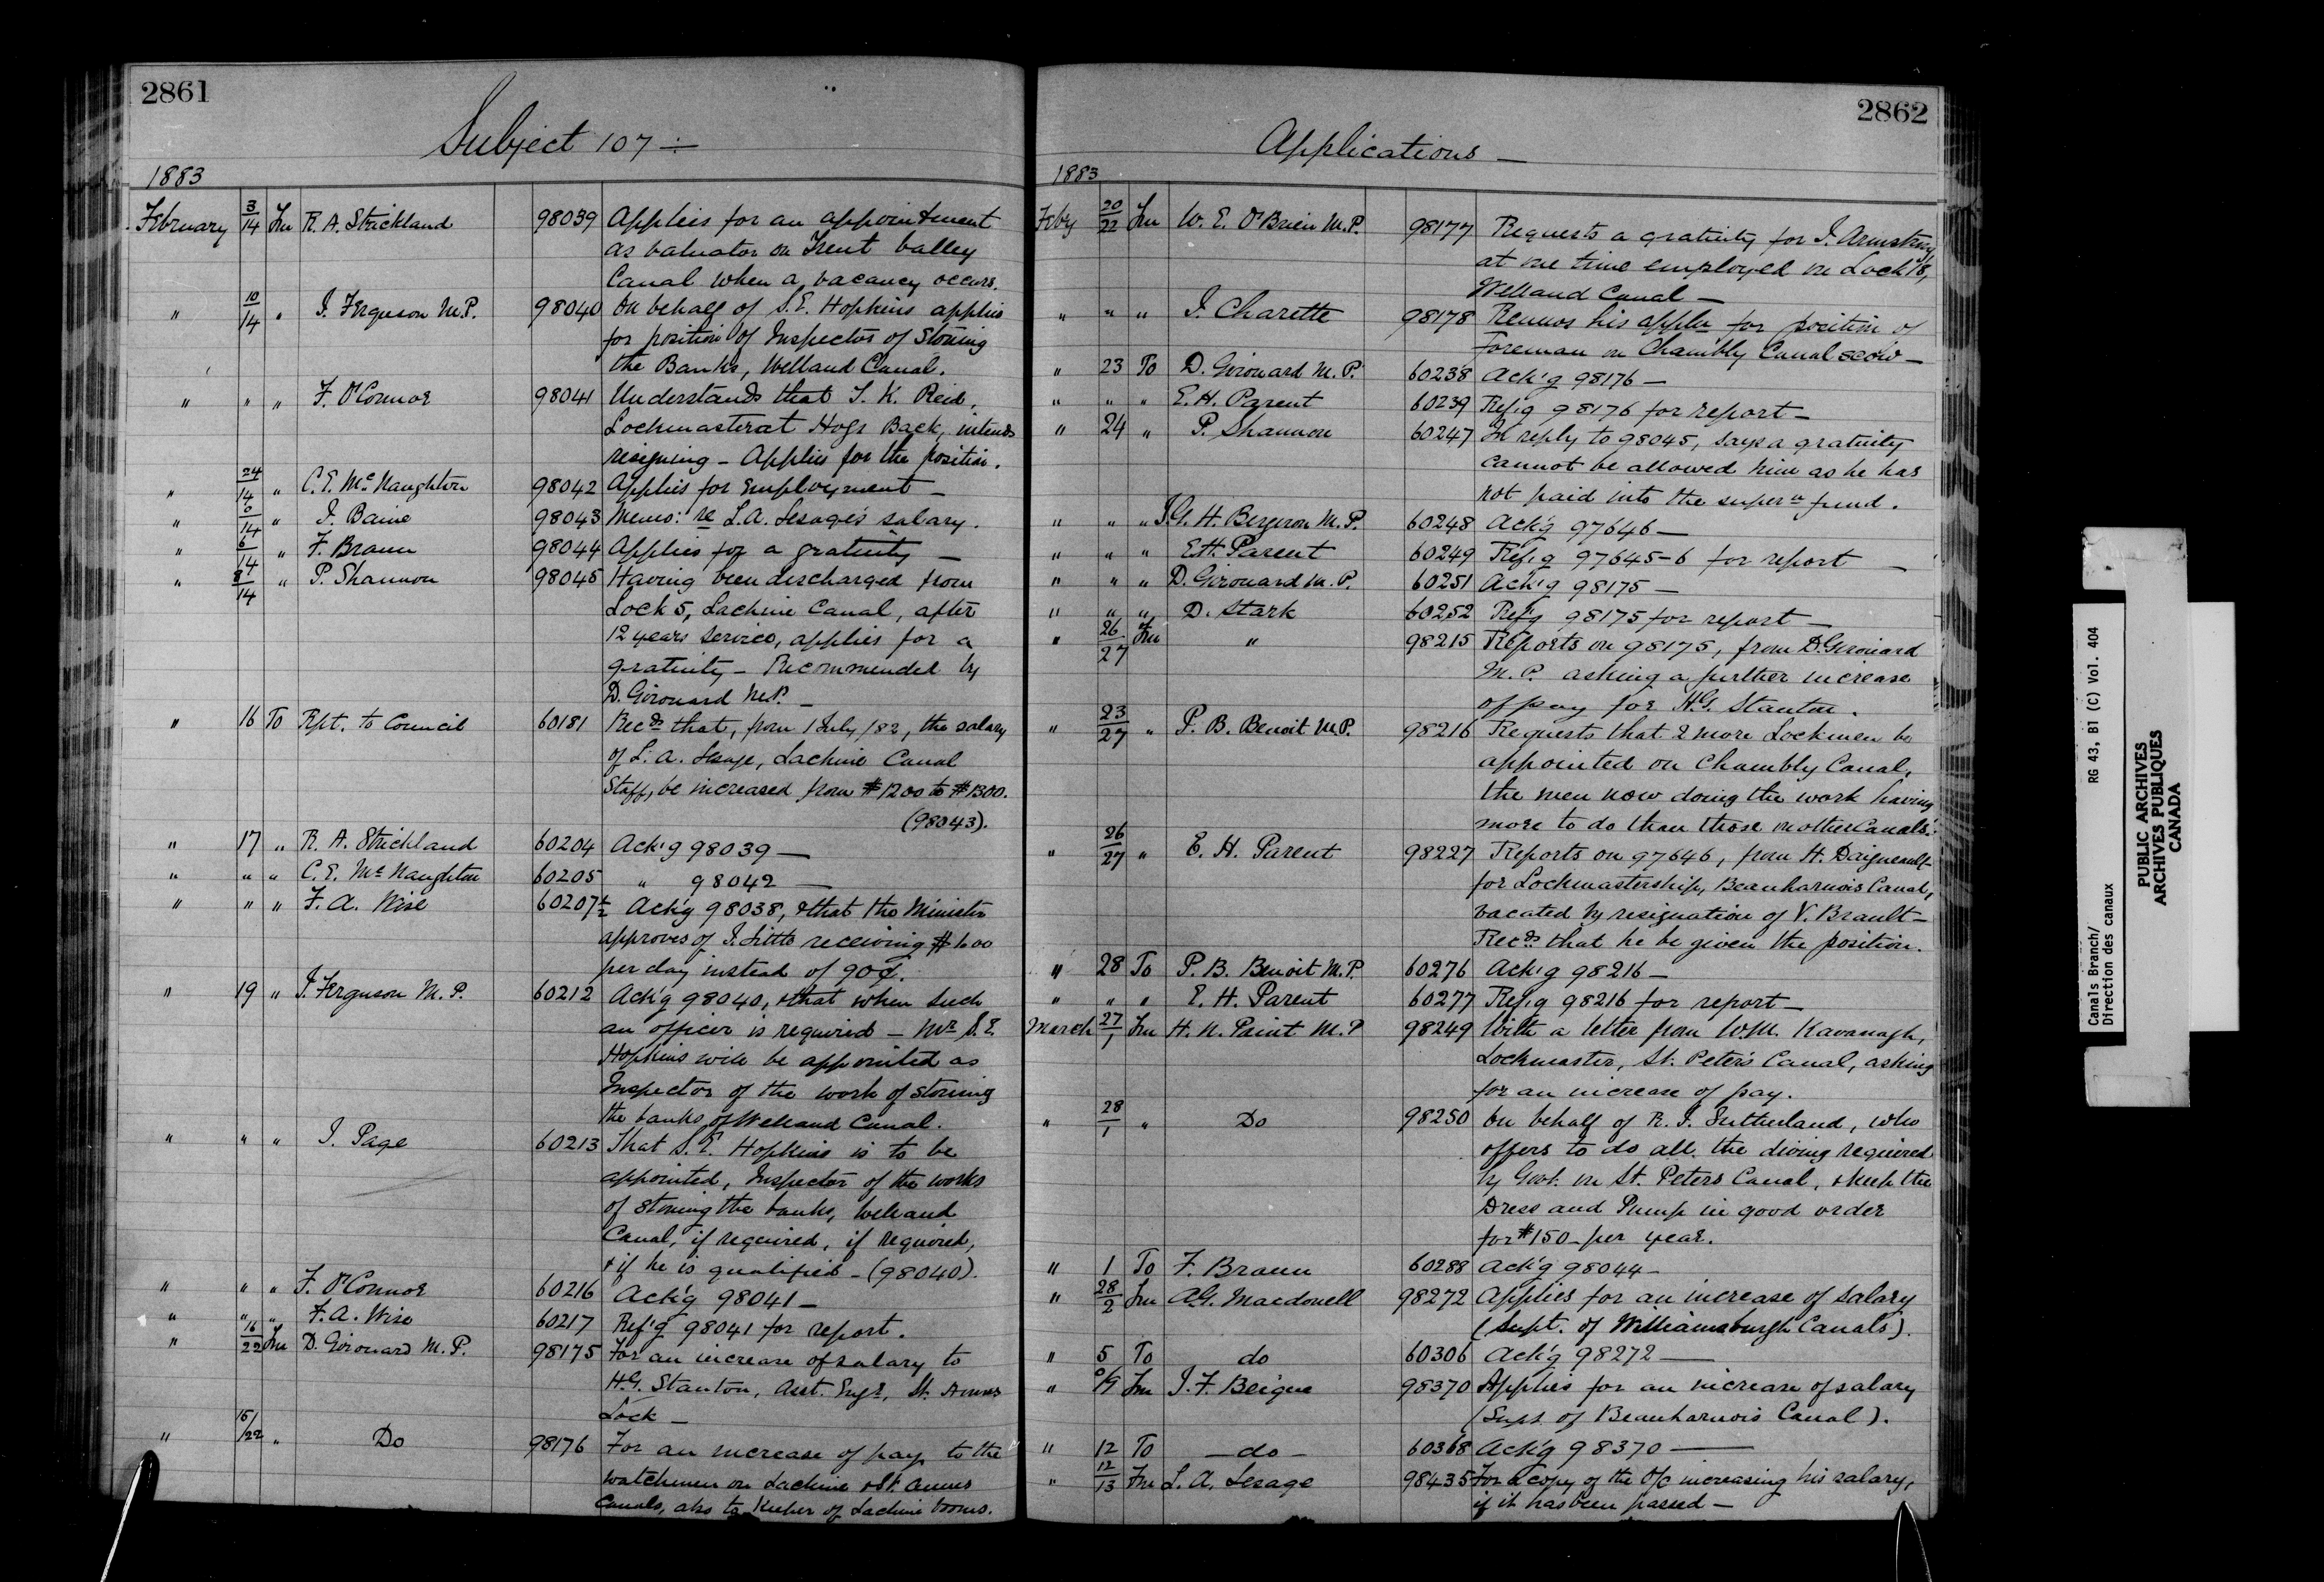 2861
Subject 107 ÷
1883
February 3/14 Fm R. A. Strickland 98039 Applies for an appointment
as valuator on Trent Valley
Canal when a vacancy occurs.
" 10/14 " J. Ferguson M.P. 98040 On behalf of S. E. Hopkins applies
for position of Inspector of Stoning
the Banks, Welland Canal.
" " " F. O'Connor 98041 Understands that J. K. Reid,
Lockmaster at Hogs Back, intends
resigning - Applies for the position.
" 24/14 " C. E. McNaughton 98042 Applies for Employment —
" 0/14 " J. Baine 98043 Memo: re L. A. Lesage's salary.
" 6/14 " F. Braun 98044 Applies for a gratuity —
" 8/14 " P. Shannon 98045 Having been discharged from
Lock 5, Lachine Canal, after
12 years service, applies for a
gratuity - Recommended by
D. Girouard M.P. —
" 16 To Rpt. to Council 60181 Recds that, from 1 July /82, the salary
of L. A. Lesage, Lachine Canal
Staff, be increased from $1200 to $1300.
(98043).
" 17 " R. A. Strickland 60204 Ack'g 98039 —
" " " C. E. McNaughton 60205 " 98042 —
" " " F. A. Wise 60207½ Ack'g 98038, & that the Minister
approves of J. Little receiving $1.00
per day instead of 90¢.
" 19 " J. Ferguson M. P. 60212 Ack'g 98040, & that when such
an officer is required — Mr S. E.
Hopkins will be appointed as
Inspector of the work of stoning
the banks of Welland Canal.
" " " J. Page 60213 That S. E. Hopkins is to be
appointed, Inspector of the works
of stoning the banks, Welland
Canal, if required, if required,
& if he is qualified - (98040).
" " " F. O'Connor 60216 Ack'g 98041 —
" " " F. A. Wise 60217 Ref'g 98041 for report.
" 16/22 Fm D. Girouard M. P. 98175 For an increase of salary to
H. G. Stanton, Asst. Engr, St. Annes
Lock —
" 15/22 " Do 98176 For an increase of pay to the
watchmen on Lachine & St. Annes
Canals, also to Keeper of Lachine booms.
2862
Applications —
1883
Feby 20/22 Fm W. E. O'Brien M.P. 98177 Requests a gratuity for J. Armstrong
at one time employed on Lock 18,
Welland Canal —
" " " J. Charette 98178 Renews his appln for position of
Foreman on Chambly Canal scow —
" 23 To D. Girouard M. P. 60238 Ack'g 98176 —
" " " E. H. Parent 60239 Ref'g 98176 for report —
" 24 " P. Shannon 60247 In reply to 98045, says a gratuity
cannot be allowed him as he has
not paid into the supern fund.
" " " J. G. H. Bergeron M. P. 60248 Ack'g 97646 —
" " " E. H. Parent 60249 Ref'g 97645-6 for report —
" " " D. Girouard M. P. 60251 Ack'g 98175 —
" " " D. Stark 60252 Ref'g 98175 for report —
" 26/27 Fm " 98215 Reports on 98175, from D. Girouard
M. P. asking a further increase
of pay for H. G. Stanton.
" 23/27 " P. B. Benoit M.P. 98216 Requests that 2 more Lockmen be
appointed on Chambly Canal,
the men now doing the work having
more to do than those on other Canals.
" 26/27 " E. H. Parent 98227 Reports on 97646, from H. Daigneault
for Lockmastership, Beauharnois Canal,
vacated by resignation of V. Brault —
Recds that he be given the position.
" 28 To P. B. Benoit M. P. 60276 Ack'g 98216 —
" " " E. H. Parent 60277 Ref'g 98216 for report —
March 27/1 Fm H. N. Paint M. P 98249 With a letter from W. M. Kavanagh,
Lockmaster, St. Peter's Canal, asking
for an increase of pay.
" 28/1 " Do 98250 On behalf of R. J. Sutherland, who
offers to do all the diving required
by Govt. on St. Peters Canal, & keep the
Dress and Pump in good order
for $150 - per year.
" 1 To F. Braun 60288 Ack'g 98044 —
" 28/2 Fm A. G. Macdonell 98272 Applies for an increase of salary
(Supt. of Williamsburgh Canals).
" 5 To do 60306 Ack'g 98272 —
" 0/9 Fm J. F. Beique 98370 Applies for an increase of salary
(Supt. of Beauharnois Canal).
" 12 To — do — 60368 Ack'g 98370 —
" 12/13 Fm L. A. Lesage 98435 For a copy of the O/C increasing his salary,
if it has been passed —
Canals Branch/ RG 43, B1 (C) Vol. 404
Direction des canaux
PUBLIC ARCHIVES
ARCHIVES PUBLIQUES
CANADA